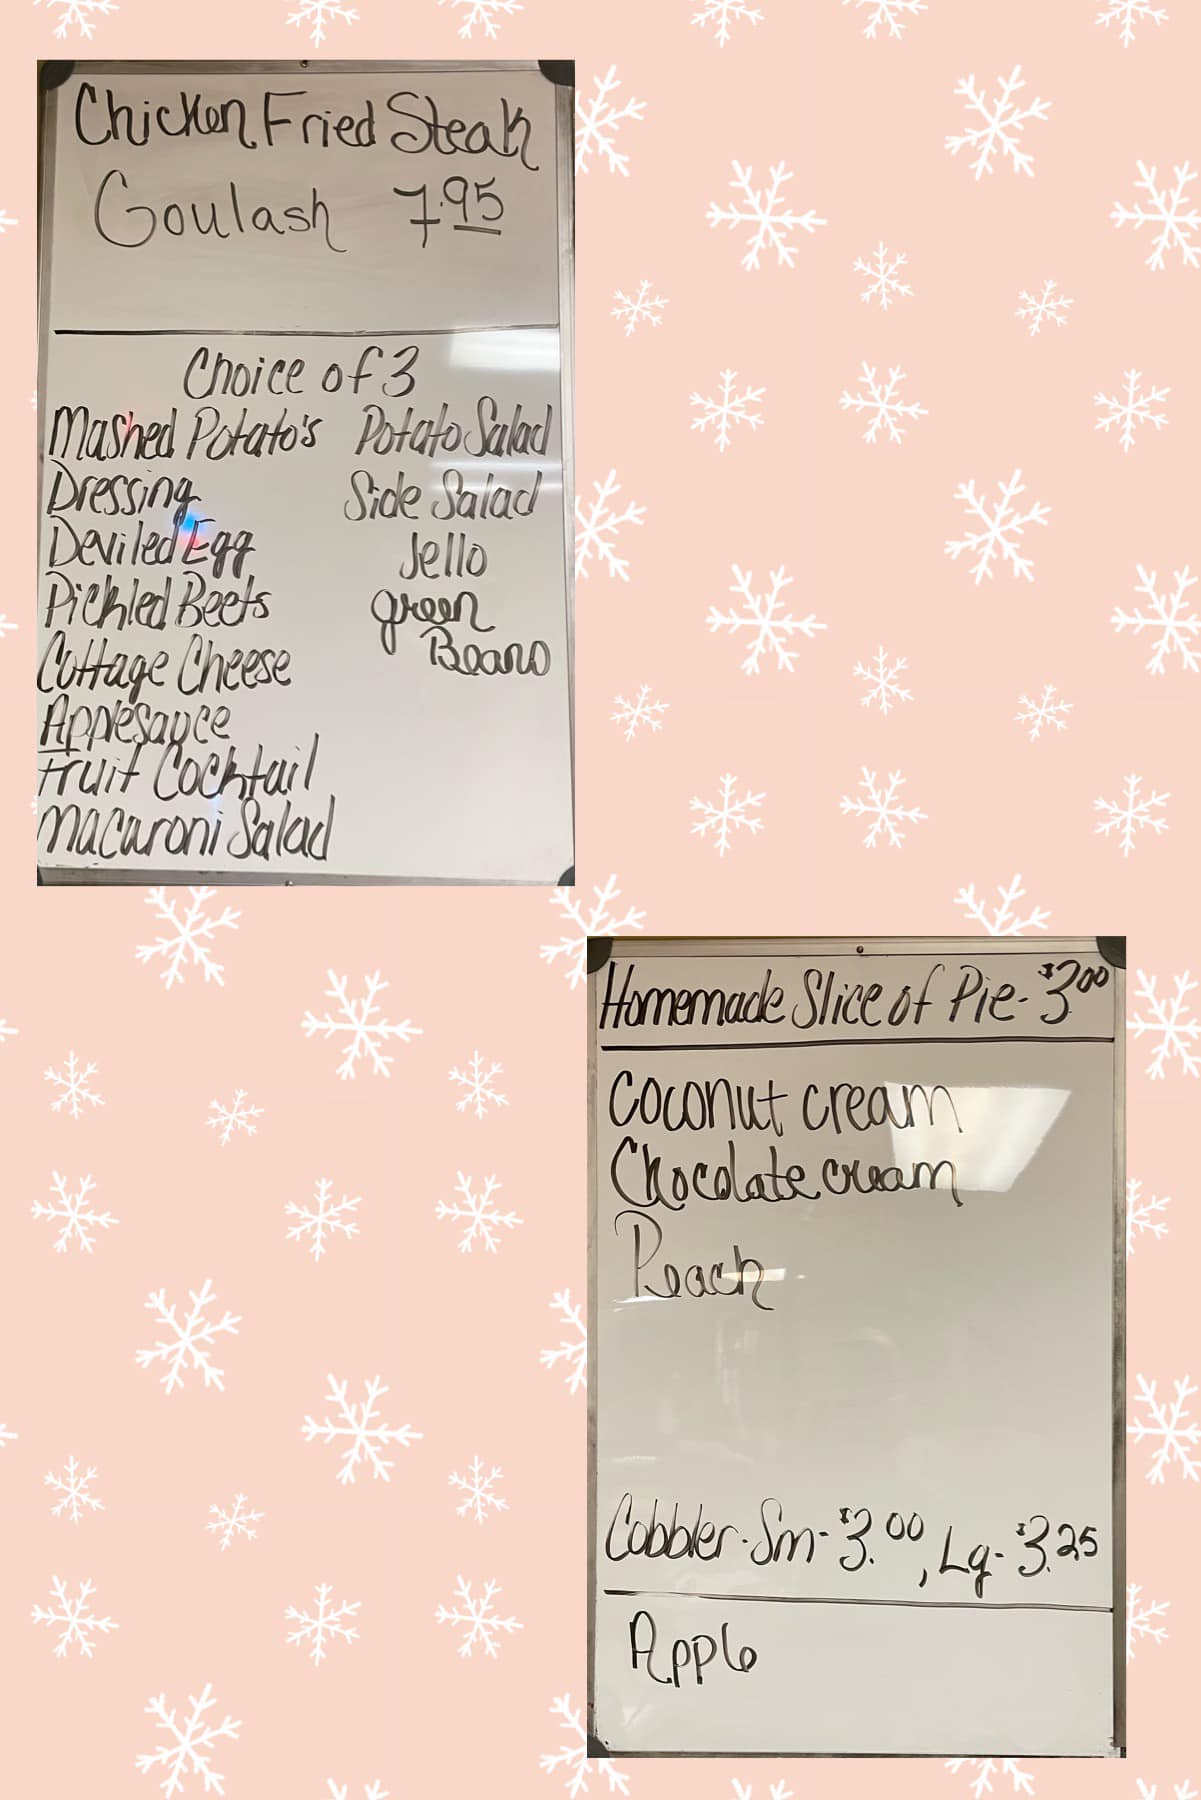 Chicken Fried Steak
Goulash 7.95
Choice of 3
Mashed Potato's
Dressing
Deviled Egg
Pickled Beets
Cottage Cheese
Applesauce
Fruit Cocktail
Macaroni Salad
Potato Salad
Side Salad
Jello
green
Beans
Homemade Slice of Pie - $3.00
Coconut cream
Chocolate cream
Peach
Cobbler - Sm - $3.00, Lg - $3.25
Apple